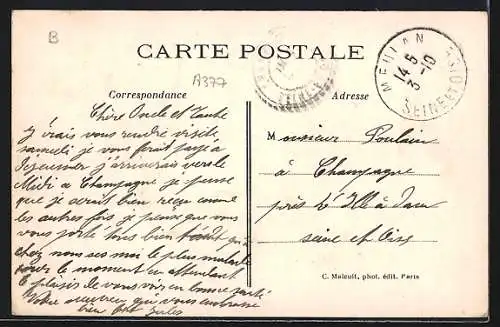 B
CARTE POSTALE
A377
Correspondance
Adresse
MEULAN
14 5
3 -10
SEINE ET OISE
Chère Oncle et Tante
J'irais vous rendre visite
samedi je vous ferait paye à
Dejeunner j'arriverais vers le
Midi a Champagne je pense
que je serait bien reçu comme
les autres fois je pense que vous
vous porté tous bien
chez nous ses moi le plus malade
pour le moment en attendant
le plaisir de vous voir en bonne santé
Votre neuveu qui vous embrasse
bien fort Jules
Monsieur Poulain
à Champagne
près L'Ille à Dam
seine et Oise
C. Maleuit, phot. édit. Paris